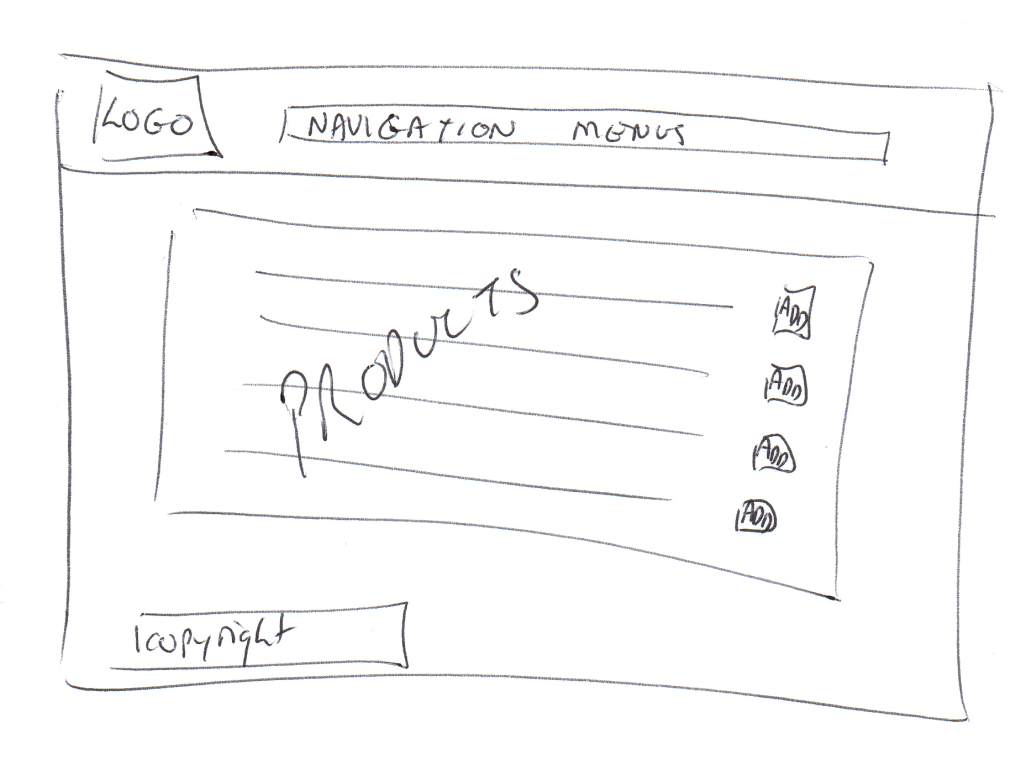 LOGO
NAVIGATION MENUS
PRODUCTS
ADD
ADD
ADD
ADD
copyright